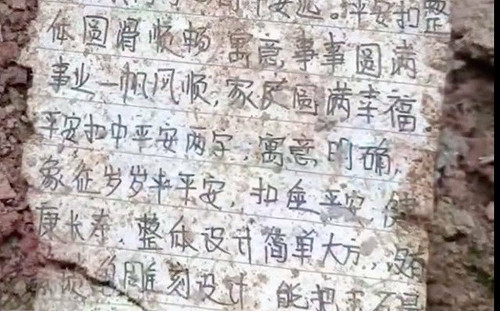 平安意。平安扣整
体圆滑顺畅,寓意事事圆满
事业一帆风顺,家庭圆满幸福。
平安扣中平安两字,寓意明确,
象征岁岁平平安,扣住平安,健
康长寿,整体设计简单大方,没有
雕刻设计,能把玉石